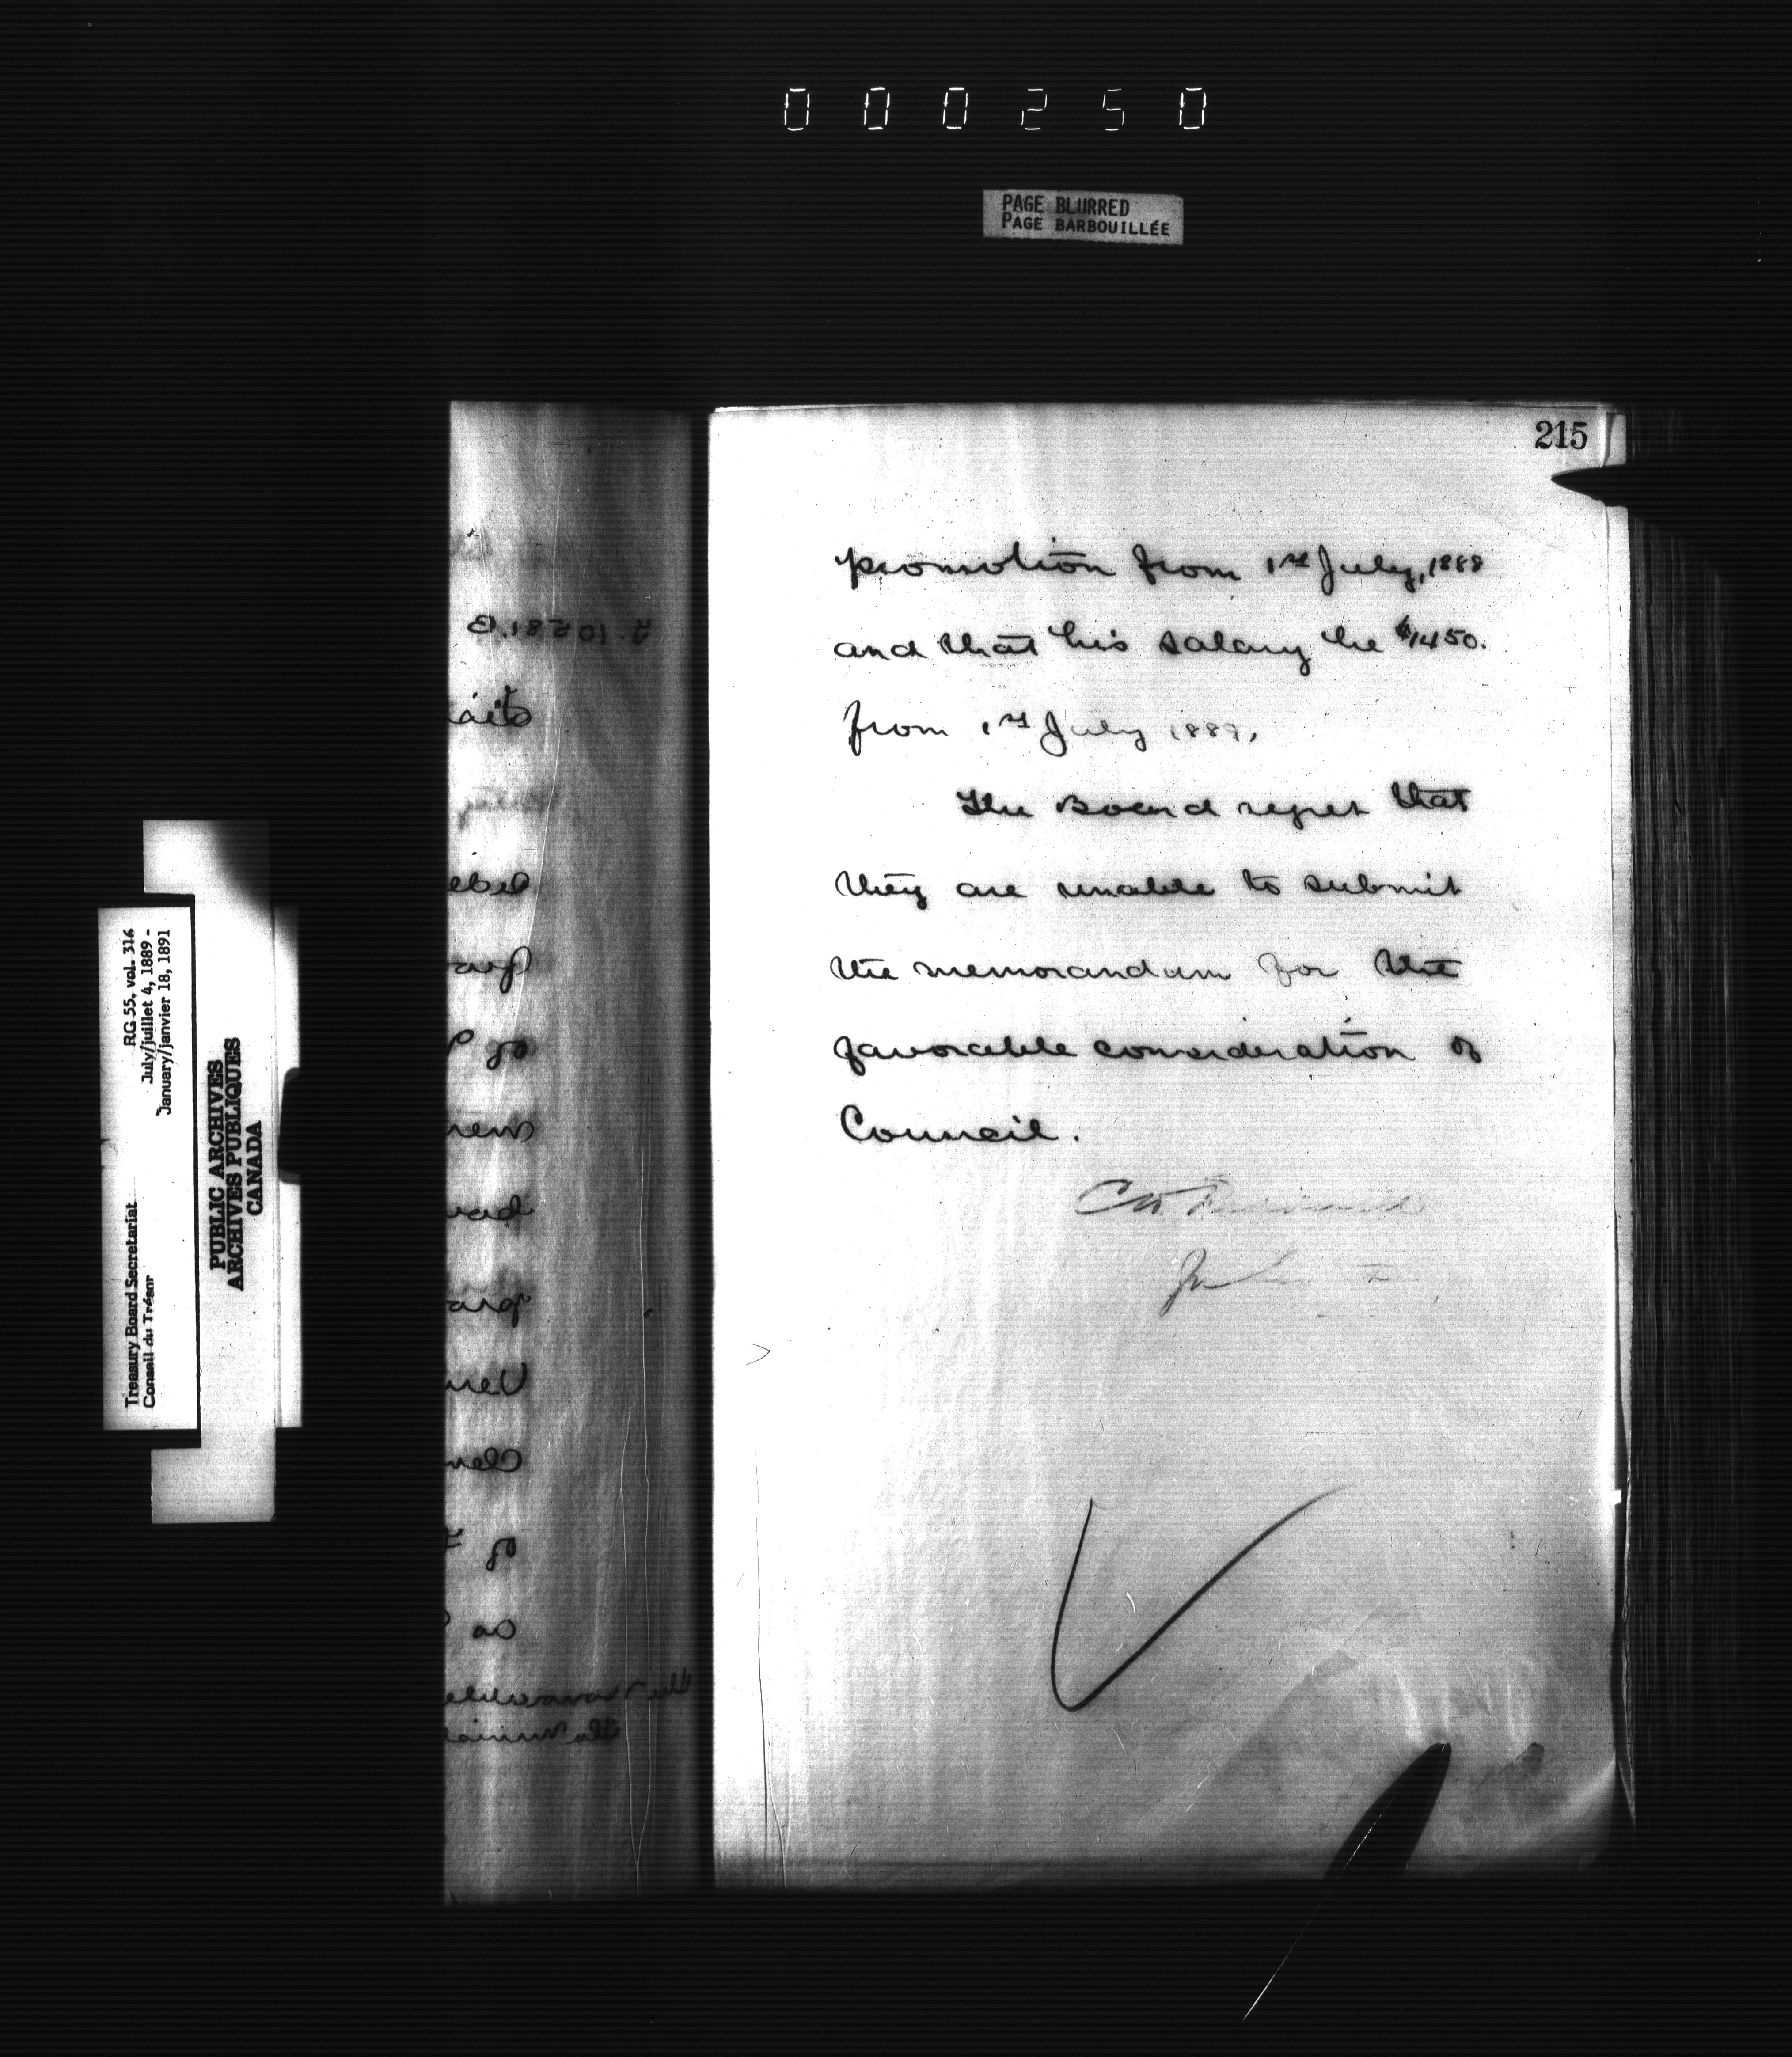 000250
PAGE BLURRED
PAGE BARBOUILLÉE
215
promotion from 1st July, 1888
and that his salary be $1450.
from 1st July 1889.
The Board regret that
they are unable to submit
the memorandum for the
favorable consideration of
Council.
RG 55, vol. 316
July/juillet 4, 1889 -
January/janvier 18, 1891
Treasury Board Secretariat
Conseil du Trésor
PUBLIC ARCHIVES
ARCHIVES PUBLIQUES
CANADA